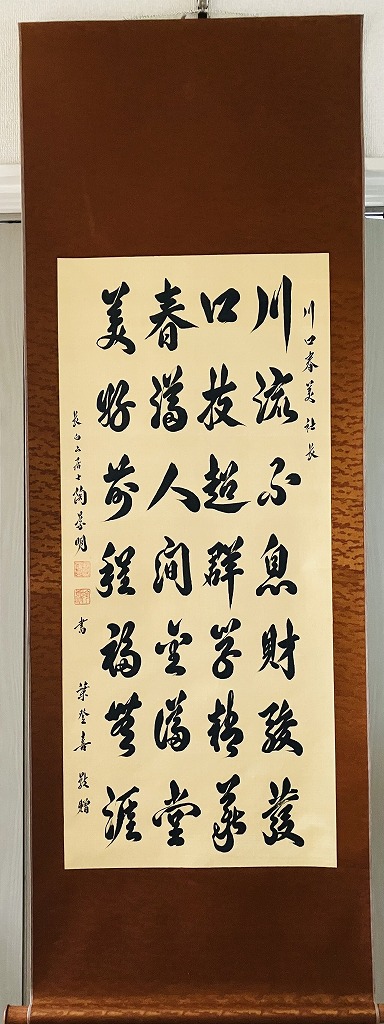 川口春美社長
川流不息財駿發
口技超群学精義
春滿人间金滿堂
美好前程福無涯
長白山居士 明
書 葉登喜 敬贈